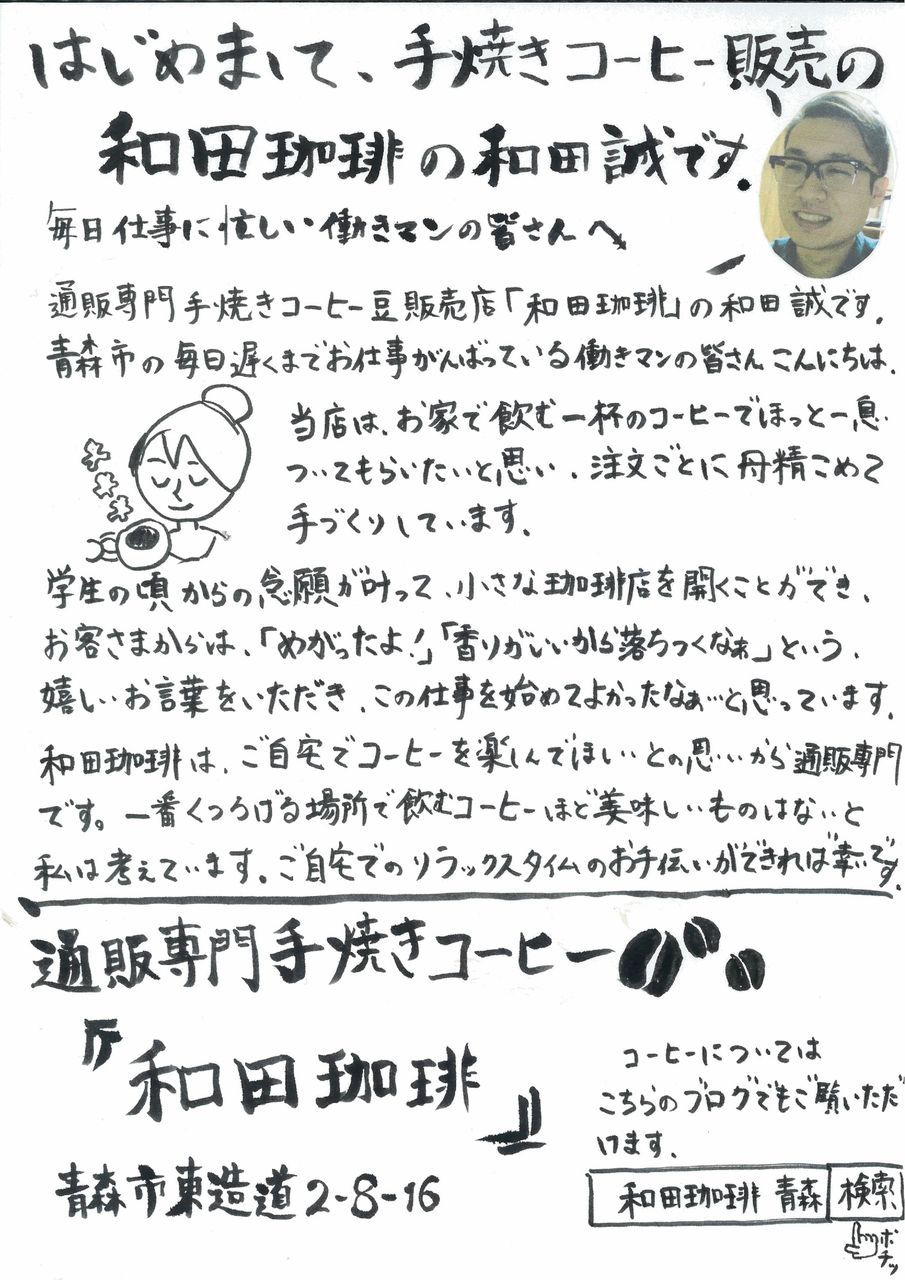 はじめまして、手焼きコーヒー販売の
和田珈琲の和田誠です。
毎日仕事に忙しい働きマンの皆さんへ
通販専門手焼きコーヒー豆販売店「和田珈琲」の和田誠です。
青森市の毎日遅くまでお仕事がんばっている働きマンの皆さんこんにちは。
当店は、お家で飲む一杯のコーヒーでほっと一息
ついてもらいたいと思い、注文ごとに丹精こめて
手づくりしています。
学生の頃からの念願が叶って、小さな珈琲店を開くことができ、
お客さまからは、「めがったよ！」「香りがいいから落ちつくなぁ」という、
嬉しいお言葉をいただき、この仕事を始めてよかったなぁ…と思っています。
和田珈琲は、ご自宅でコーヒーを楽しんでほしいとの思いから通販専門
です。一番くつろげる場所で飲むコーヒーほど美味しいものはないと
私は考えています。ご自宅でのリラックスタイムのお手伝いができれば幸いです。
通販専門手焼きコーヒー
『和田珈琲』
青森市東造道2-8-16
コーヒーについては
こちらのブログでもご覧いただ
けます。
和田珈琲 青森 検索
ポチッ